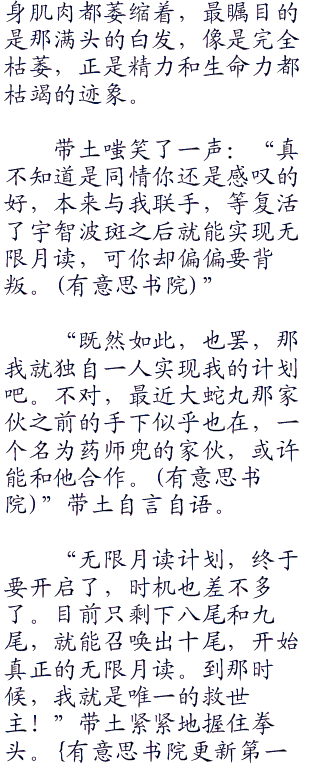 身肌肉都萎缩着，最瞩目的
是那满头的白发，像是完全
枯萎，正是精力和生命力都
枯竭的迹象。
带土嗤笑了一声：“真
不知道是同情你还是感叹的
好，本来与我联手，等复活
了宇智波斑之后就能实现无
限月读，可你却偏偏要背
叛。(有意思书院)”
“既然如此，也罢，那
我就独自一人实现我的计划
吧。不对，最近大蛇丸那家
伙之前的手下似乎也在，一
个名为药师兜的家伙，或许
能和他合作。(有意思书
院)”带土自言自语。
“无限月读计划，终于
要开启了，时机也差不多
了。目前只剩下八尾和九
尾，就能召唤出十尾，开始
真正的无限月读。到那时
候，我就是唯一的救世
主！”带土紧紧地握住拳
头。{有意思书院更新第一